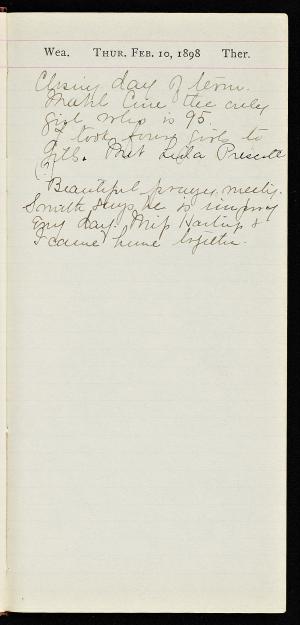 Wea. THUR. FEB. 10, 1898 Ther.
Closing day of term.
Mabel Cine the only
girl who is 95.
I took four girls to
Gilb. Met Lula Prescott
(?)
Beautiful prayer meeting.
Smith says he is improving
Every day. Miss Hartup &
I came home together.